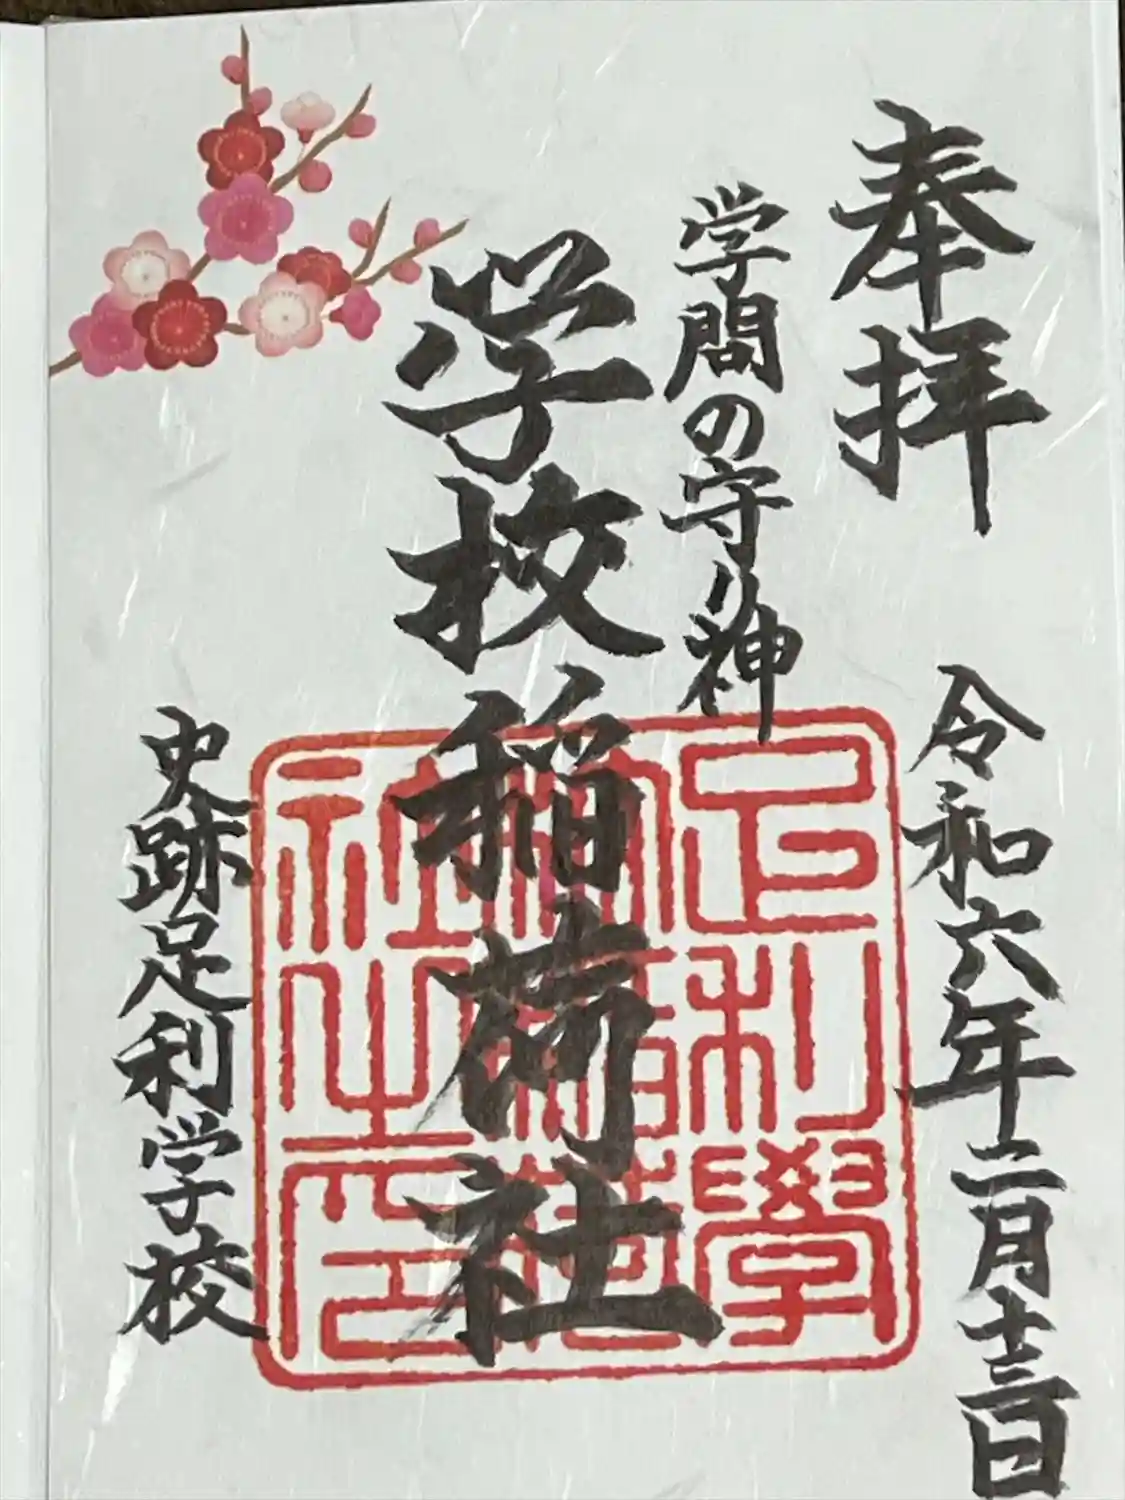 奉拝
令和六年二月十三日
学問の守り神
学校稲荷社
史跡足利学校